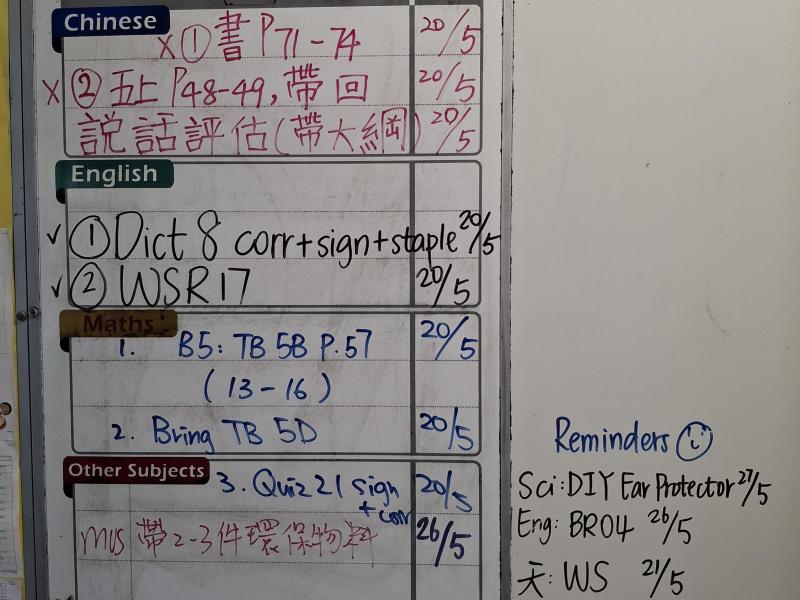 Chinese
X ① 書 P71-74 20/5
X ② 五上 P48-49, 帶回 20/5
說話評估(帶大綱) 20/5
English
✓ ① Dict 8 corr+sign+staple 20/5
✓ ② WSR17 20/5
Maths
1. B5: TB 5B P.57 20/5
(13-16)
2. Bring TB 5D 20/5
Other Subjects
3. Quiz 21 sign 20/5
+ corr
mus 帶2-3件環保物料 26/5
Reminders
Sci: DIY Ear Protector 27/5
Eng: BR04 26/5
天: WS 21/5